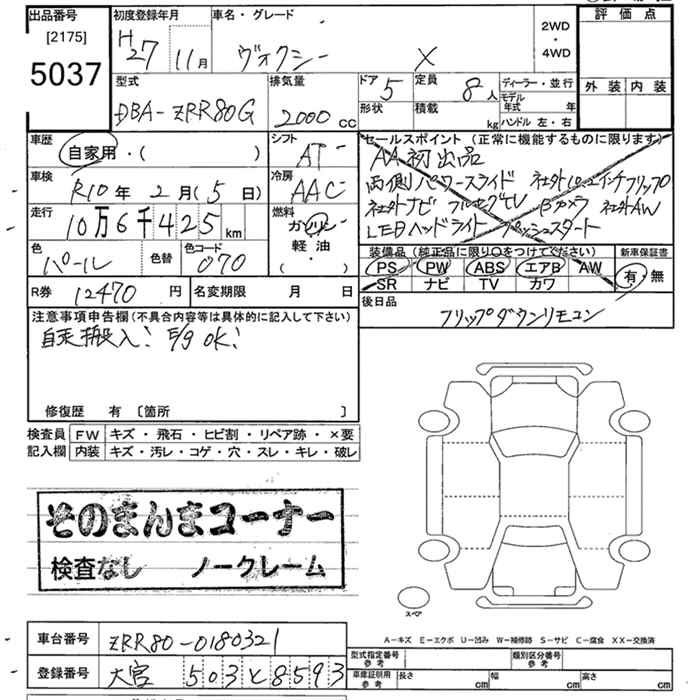 出品番号 初度登録年月 車名・グレード 2WD・4WD 評価点
[2175] 5037
H27 11月 ヴォクシー X
外装 内装
型式 排気量 ドア 5 定員 8人 ディーラー・並行
DBA-ZRR80G 2000cc 形状 積載 kg モデル年式 年
ハンドル 左・右
車歴 自家用・( ) シフト AT
車検 R10年 2月(5日) 冷房 AAC
走行 10万6千425km 燃料 ガソリン 軽油 ( ・ )
色 パール 色替 色コード 070
R券 12470円 名変期限 月 日
セールスポイント (正常に機能するものに限ります)
AA初出品
両側パワースライド 社外10.2インチフリップ
社外ナビ フルセグTV Bカメラ 社外AW
LEDヘッドライト プッシュスタート
装備品(純正品に限り○をつけてください) 新車保証書
PS PW ABS エアB AW 有・無
SR ナビ TV カワ
後日品
フリップダウンリモコン
注意事項申告欄(不具合内容等は具体的に記入して下さい)
自走搬入! E/g OK!
修復歴 有 [箇所 ]
検査員 FW キズ・飛石・ヒビ割・リペア跡・×要
記入欄 内装 キズ・汚レ・コゲ・穴・スレ・キレ・破レ
そのまんまコーナー
検査なし ノークレーム
スペア
A-キズ E-エクボ U-凹み W-補修跡 S-サビ C-腐食 XX-交換済
車台番号 ZRR80-0180321
登録番号 大宮 503 と 8593
型式指定番号 参考 類別区分番号 参考
車庫証明用 参考 長さ cm 幅 cm 高さ cm